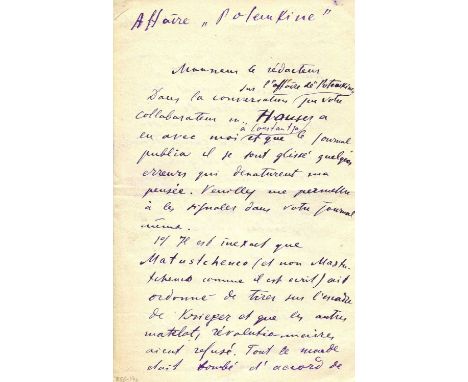 Affaire „Potemkine"
Monsieur le rédacteur
sur l'affaire de Potemkine
Dans la conversation que votre
collaborateur m. Hauser a
à Constantza
eu avec moi et que le journal
publia il se sont glissé quelques
erreurs qui dénaturent ma
pensée. Veuillez me permettre
à les signaler dans votre journal
même.
1o/ Il est inexact que
Matustchenco (et non Mastu-
tchenco comme il est ecrit) ait
ordonné de tirer sur l'escadre
de Krieger et que les autres
matelots révolutionnaires
aient refusé. Tout le monde
était tombé d'accord de